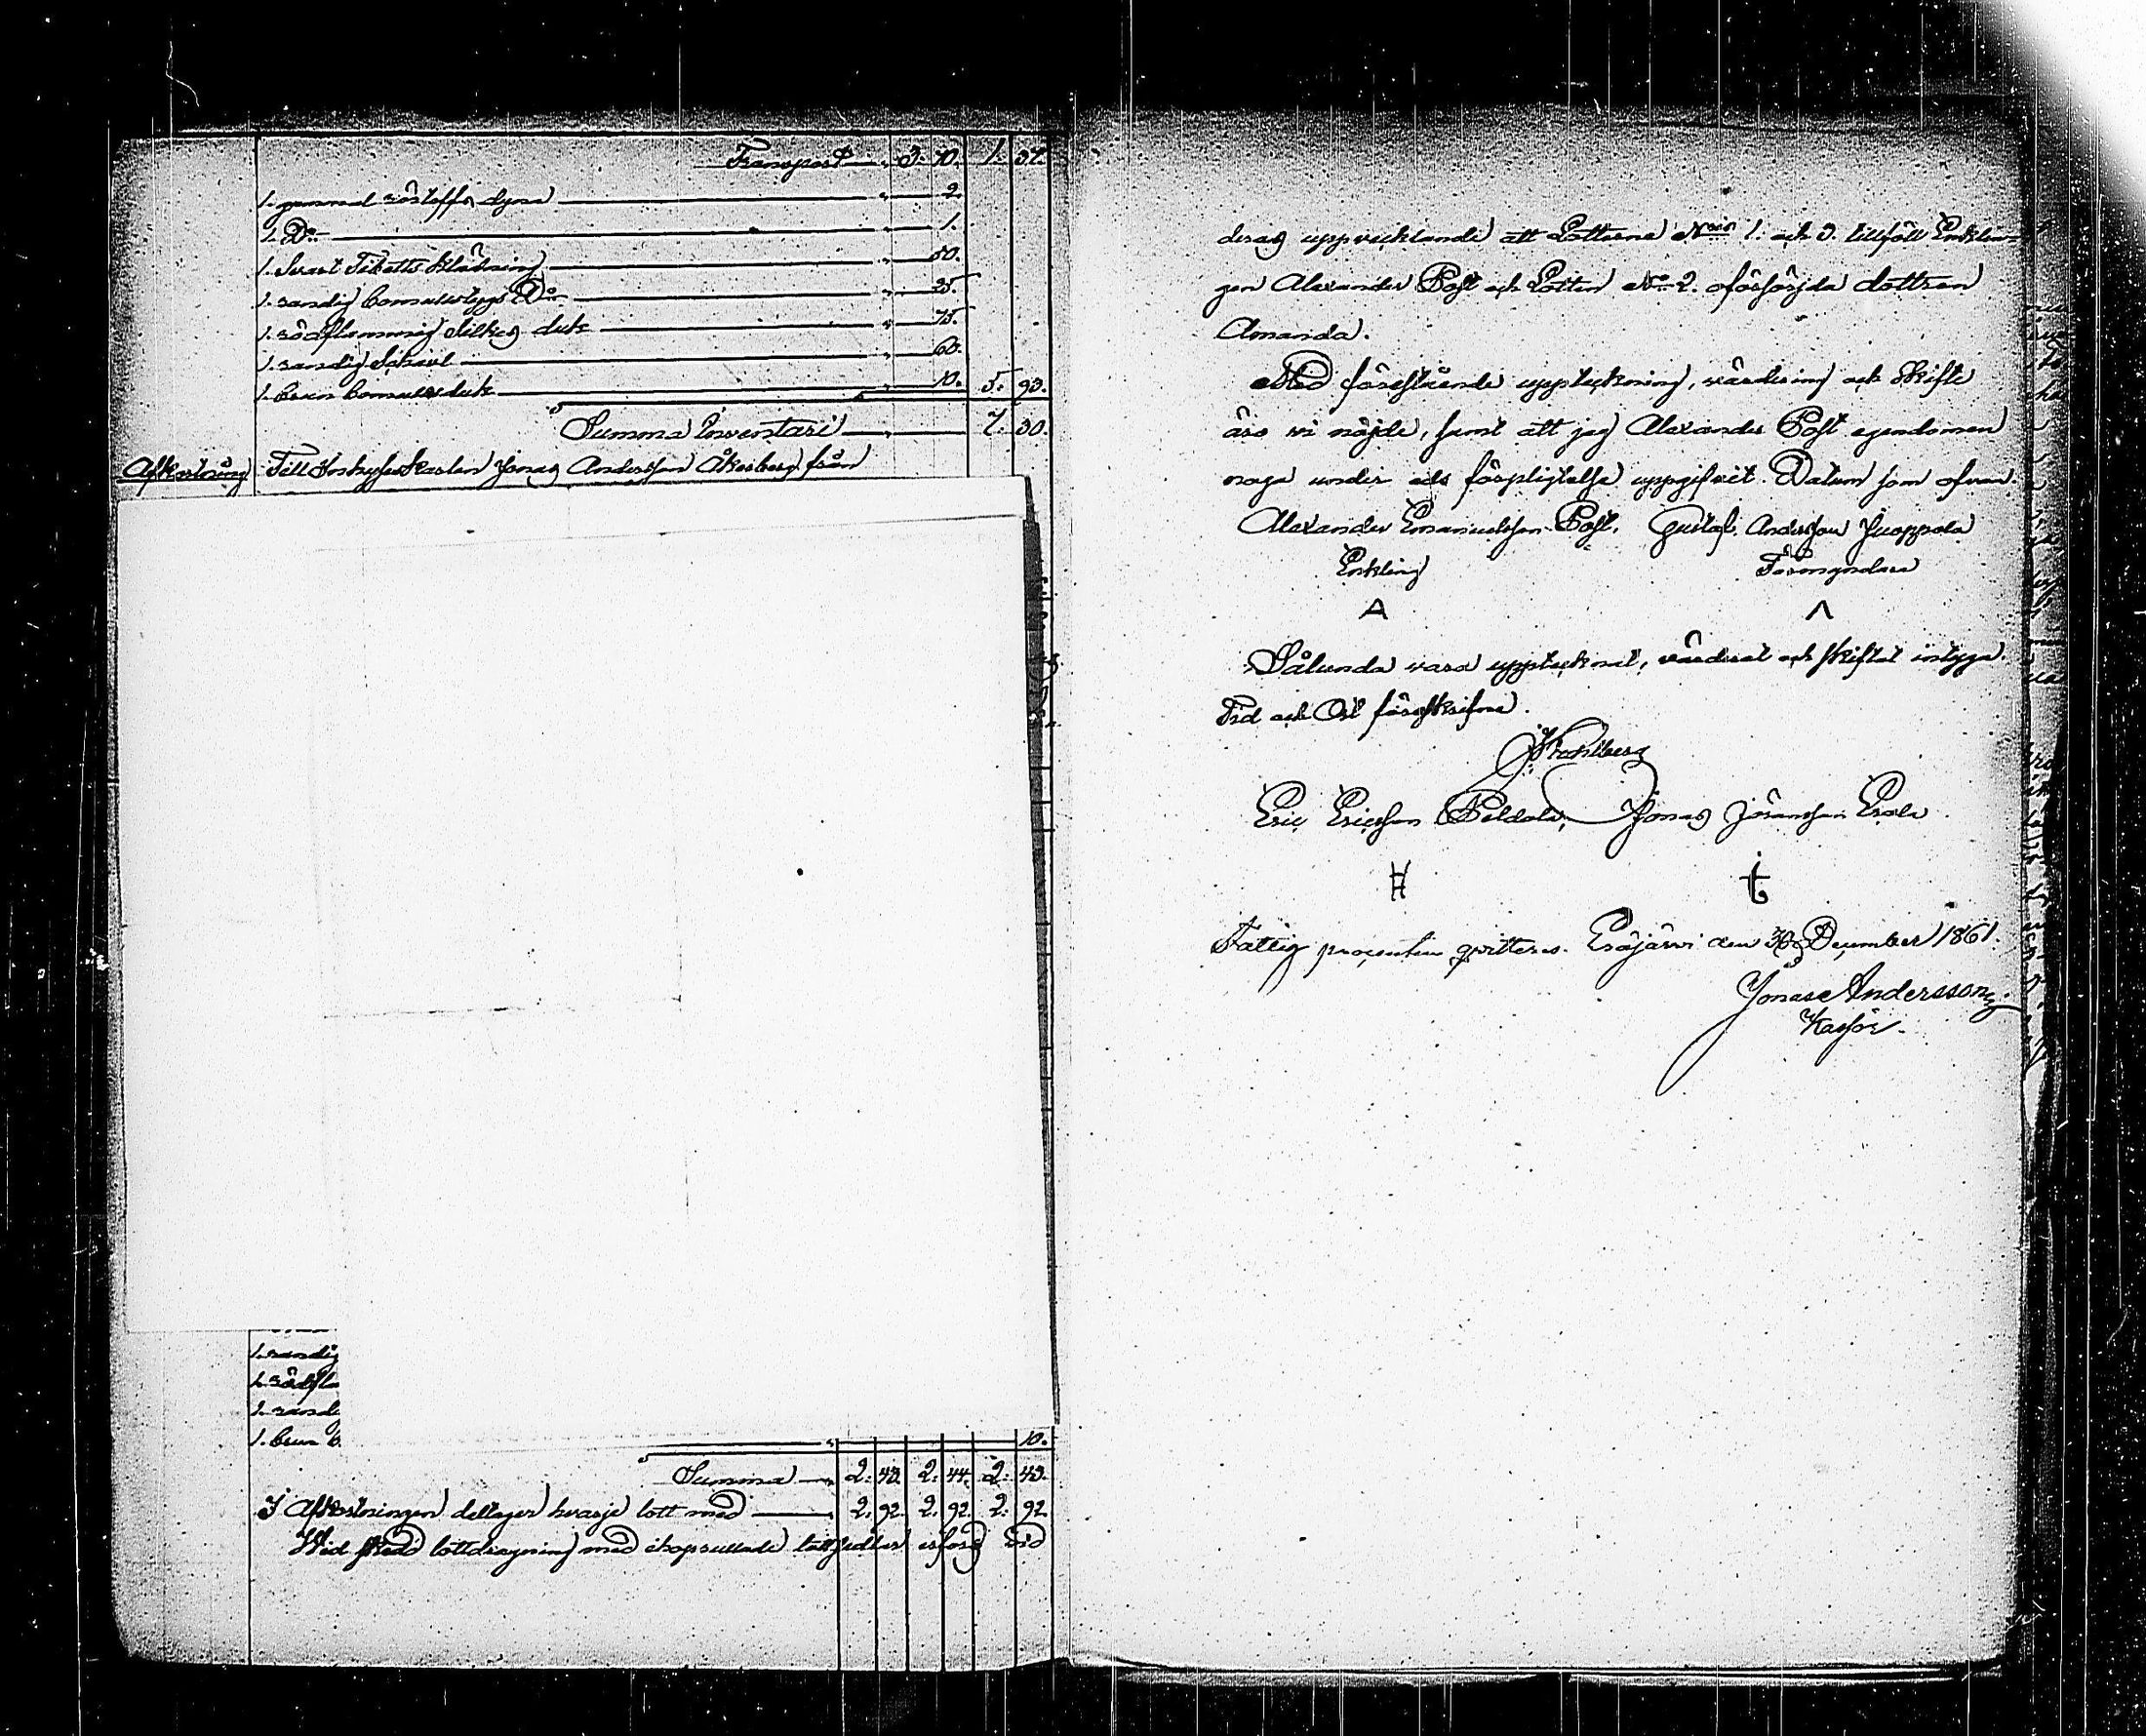 Transport 3. 70. 1. 37.
1. gammal dyna 2.
1. Do 1.
1. Svart Klädning 80.
1. randig Bomullstygs Do 25.
1. rödflammig Silkes duk 75.
1. randig Schavl 60.
1. brun Bomulls duk 10. 5. 93.
Summa Inventarii 7. 30.
Afkortning Till Jonas Andersson Åkerberg från
1. randig
1. rödfla
1. rand
1. brun b
10.
Summa 2. 43. 2. 44. 2. 43.
I Afkortningen deltager hvarje lott med 2. 92. 2. 92. 2. 92.
Wid skedd lottdragning med ihoprullade lottsedlar erfors vid
deras upprecklande att Lotterna Nris 1. och 3. tillföll Enklin-
gen Alexander Post och Lotten No 2. oförsörjda dottren
Amanda.
Med förestående uppteckning, värdering och skifte
äro vi nöjde, samt att jag Alexander Post egendomen
noga under eds förpligtelse uppgifvit. Datum som ofvan.
Alexander Emanuelsson Post. Gustaf Andersson Juoppola
Enkling Förmyndare
A Λ
Sålunda vara upptecknat, värderat och skiftat intyga.
Tid och Ort förskrifne.
Eric Ericsson Peldola, Jonas Göransson Erola
Fattig procenten qvitteras. Eräjärvi den 30 December 1861.
Jonas Andersson
Kassör.